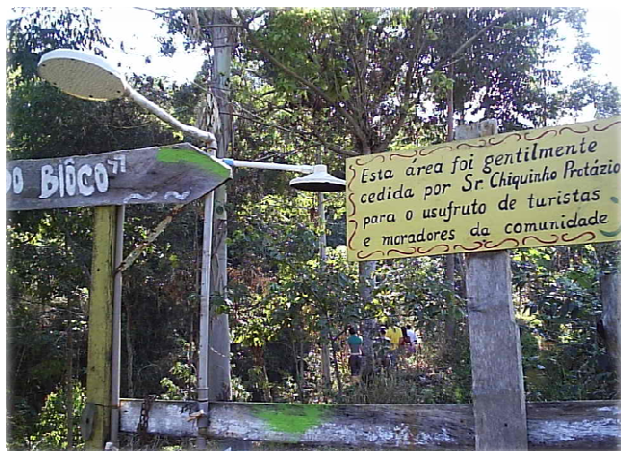 DO BLÔCO 71
Esta área foi gentilmente
cedida por Sr. Chiquinho Protázio
para o usufruto de turistas
e moradores da comunidade